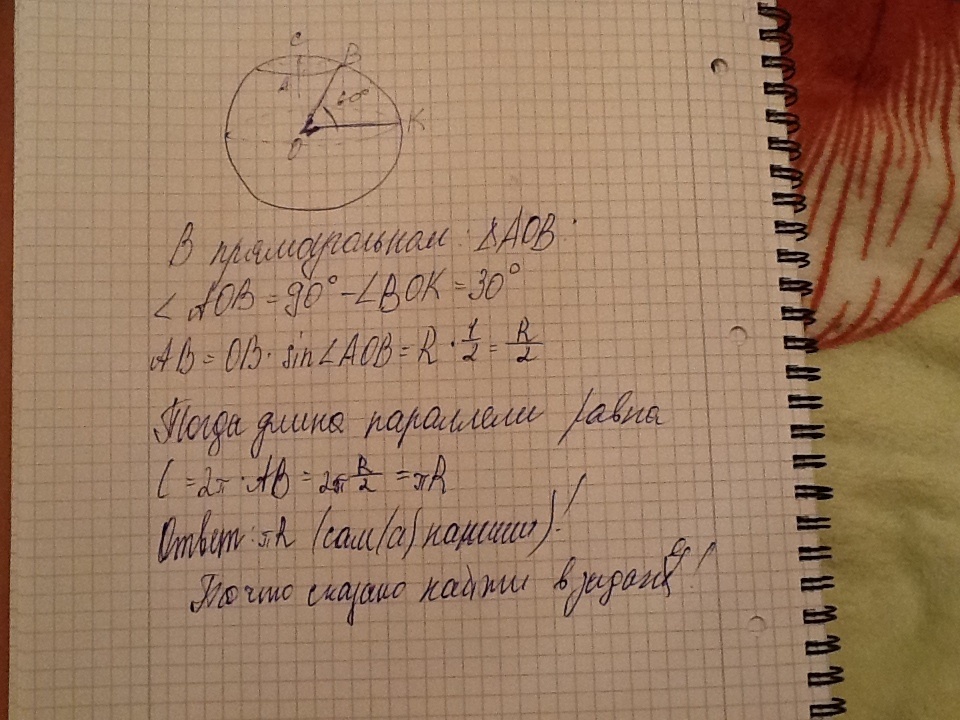 C
B
A
60°
K
O
В прямоугольном ΔAOB
∠AOB = 90° - ∠BOK = 30°
AB = OB · sin∠AOB = R · 1/2 = R/2
Тогда длина параллели равна
C = 2π · AB = 2π R/2 = πR
Ответ: πR (сам/а) напиши)!
То что сказано найти в задаче!